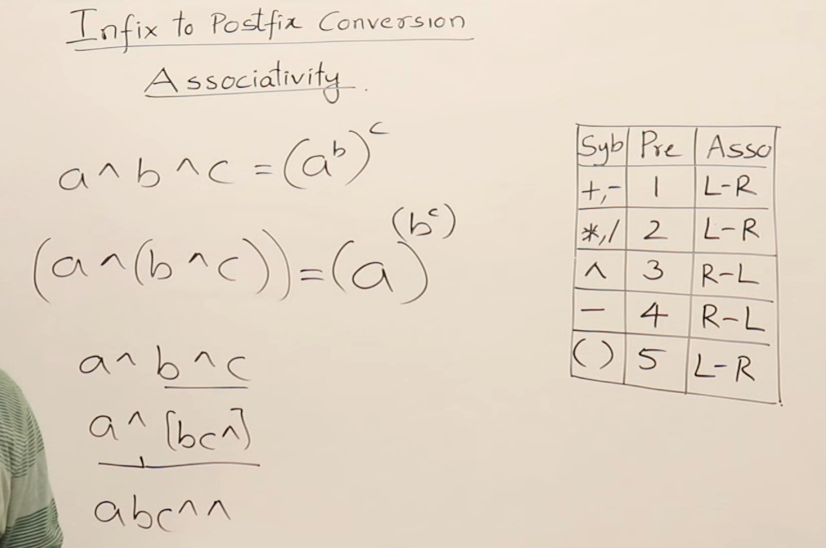 Infix to Postfix Conversion
Associativity.
a ^ b ^ c = (a^b)^c
(a ^ (b ^ c)) = (a)^(b^c)
a ^ b ^ c
a ^ [bc^]
abc^^
Syb Pre Asso
+,- 1 L-R
*,/ 2 L-R
^ 3 R-L
- 4 R-L
() 5 L-R